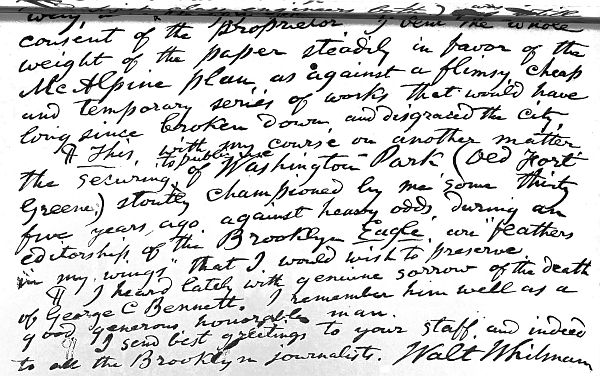 consent of the proprietor I bent the whole
weight of the paper steadily in favor of the
McAlpine plan, as against a flimsy, cheap
and temporary series of works that would have
long since broken down, and disgraced the city.
¶ This, with my course on another matter
to public use
the securing of Washington Park (old Fort
Greene,) stoutly championed by me some thirty
five years ago, against heavy odds, during an
editorship of the Brooklyn Eagle, are "feathers
in my wings" that I would wish to preserve.
¶ I heard lately with genuine sorrow of the death
of George C Bennett. I remember him well as a
good, generous, honorable man.
I send best greetings to your staff, and indeed
to all the Brooklyn journalists. Walt Whitman